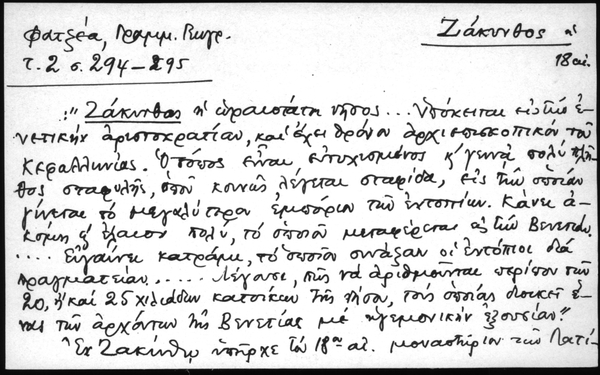 Φατζέα, Γραμμ. Γεωγρ.
Ζάκυνθος ἡ
τ. 2 σ. 294-295
18 αἰ.
"Ζάκυνθος ἡ ὡραιοτάτη νῆσος... Ὑπόκειται εἰς τὴν ἐ-
νετικὴν ἀριστοκρατίαν, καὶ ἔχει θρόνον ἀρχιεπισκοπικὸν τοῦ
Κεφαλληνίας. Ὁ τόπος εἶναι εὐτυχισμένος κ' γεννᾷ πολὺ πλῆ-
θος σταφυλῆς, ὁποῦ κοινῶς λέγεται σταφίδα, εἰς τὴν ὁποίαν
γίνεται τὸ μεγαλύτερον ἐμπόριον τῶν ἐντοπίων. Κάνει ἀ-
κόμη κ' ἔλαιον πολύ, τὸ ὁποῖον μεταφέρεται εἰς τὴν Βενετίαν.
.... Εὐγαίνει κατράμι, τὸ ὁποῖον συνάζουν οἱ ἐντόπιοι διὰ
πραγματείαν...... Λέγουσι, πῶς νὰ ἀριθμοῦνται περίπου τῶν
20, ἢ καὶ 25 χιλιάδων κατοίκων τῆς νήσου, τοὺς ὁποίους διοικεῖ ἕ-
νας τῶν ἀρχόντων τῆς Βενετίας μὲ ἡγεμονικὴν ἐξουσίαν."
Ἐν Ζακύνθῳ ὑπῆρχε τὸν 18ον αἰ. μοναστήριον τῶν Λατί-